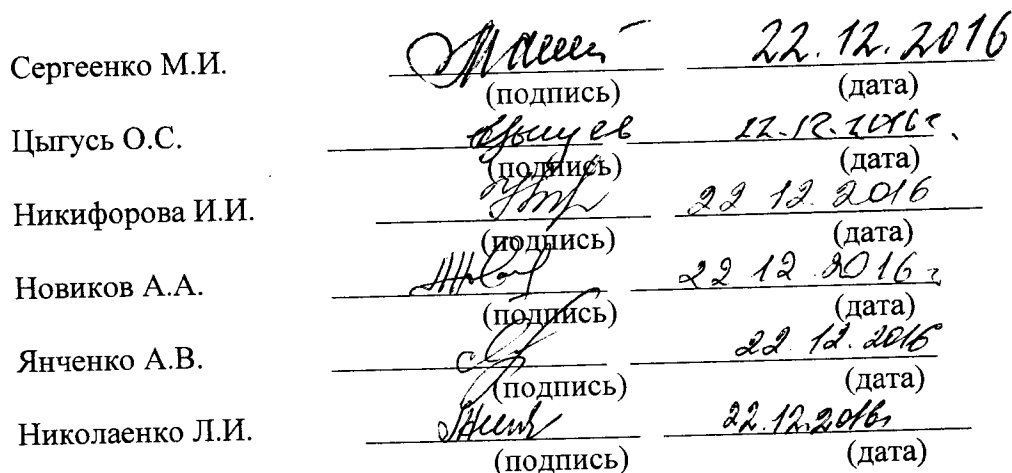 Сергеенко М.И. 22.12.2016
(подпись) (дата)
Цыгусь О.С. 22.12.2016г.
(подпись) (дата)
Никифорова И.И. 22 12. 2016
(подпись) (дата)
Новиков А.А. 22 12 2016г
(подпись) (дата)
Янченко А.В. 22. 12. 2016
(подпись) (дата)
Николаенко Л.И. 22.12.2016г
(подпись) (дата)